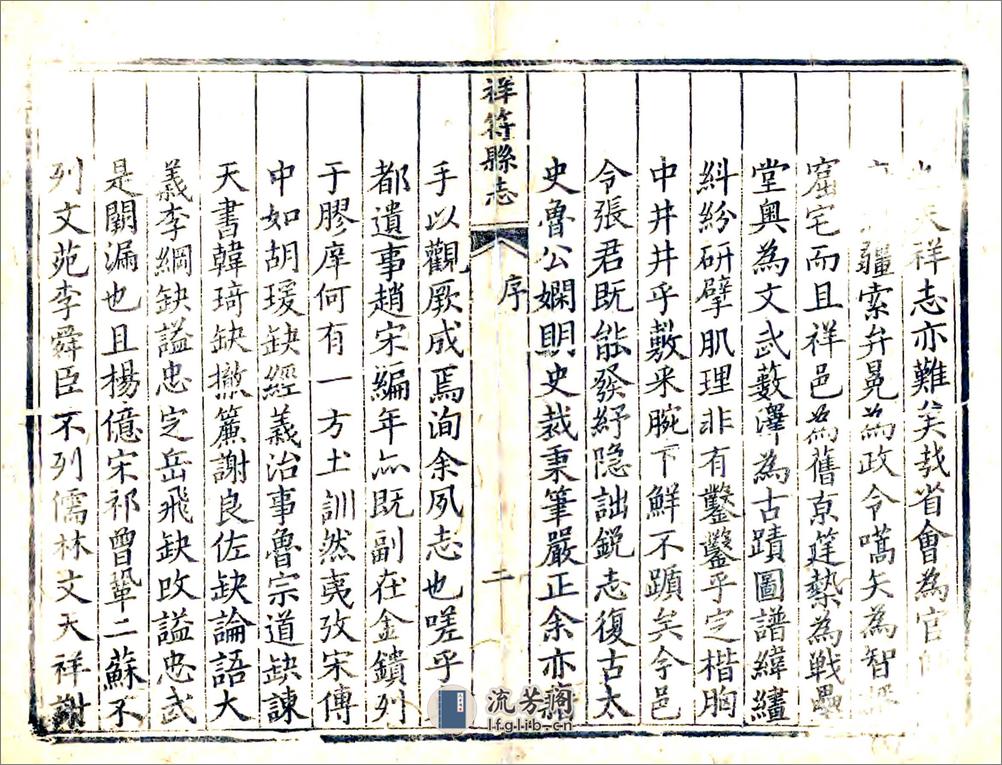 天祥志亦難矣哉省會為官
疆索弁冕為政令嚆矢為智
窟宅而且祥邑為舊京筳𫎇為戰壘
堂奧為文武藪澤為古蹟圖譜緯繣
糾紛研擘肌理非有鑿鑿乎定楷胸
中井井乎敷采腕下鮮不躓矣今邑
令張君既能發紓隱詘銳志復古太
史魯公嫻明史裁秉筆嚴正余亦
祥符縣志
序
二
手以觀厥成焉洵余夙志也嗟乎
都遺事趙宋編年亦既副在金鐀列
于膠庠何有一方土訓然夷攷宋傳
中如胡瑗缺經義治事魯宗道缺諫
天書韓琦缺撤簾謝良佐缺論語大
義李綱缺謚忠定岳飛缺改謚忠武
是闕漏也且楊億宋祁曾鞏二蘇不
列文苑李舜臣不列儒林文天祥謝
流芳阁
lfglib.cn